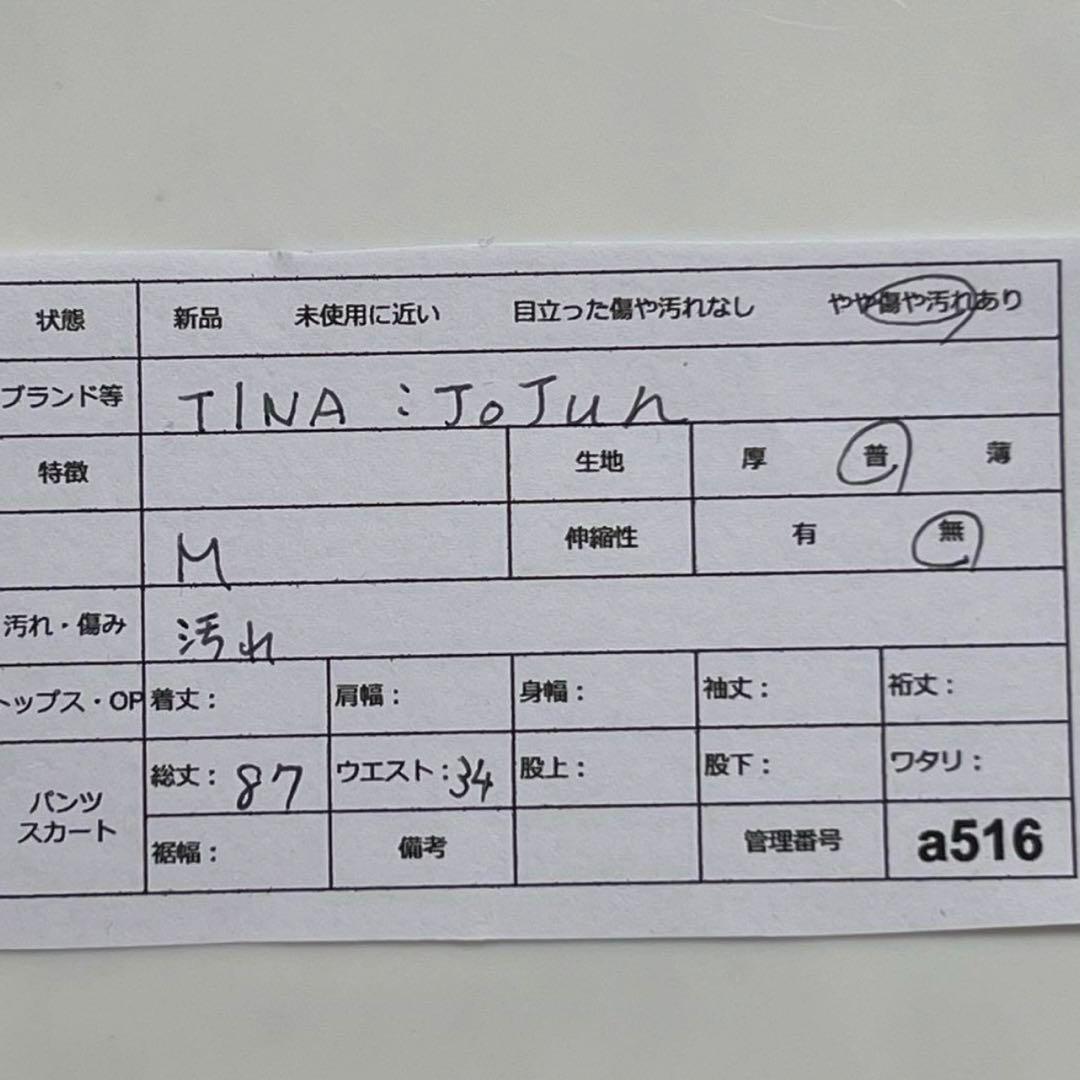 状態 新品 未使用に近い 目立った傷や汚れなし やや傷や汚れあり
ブランド等 TINA：JoJun
特徴 生地 厚 普 薄
M 伸縮性 有 無
汚れ・傷み 汚れ
トップス・OP 着丈： 肩幅： 身幅： 袖丈： 裄丈：
パンツ 総丈：87 ウエスト：34 股上： 股下： ワタリ：
スカート 裾幅： 備考 管理番号 a516